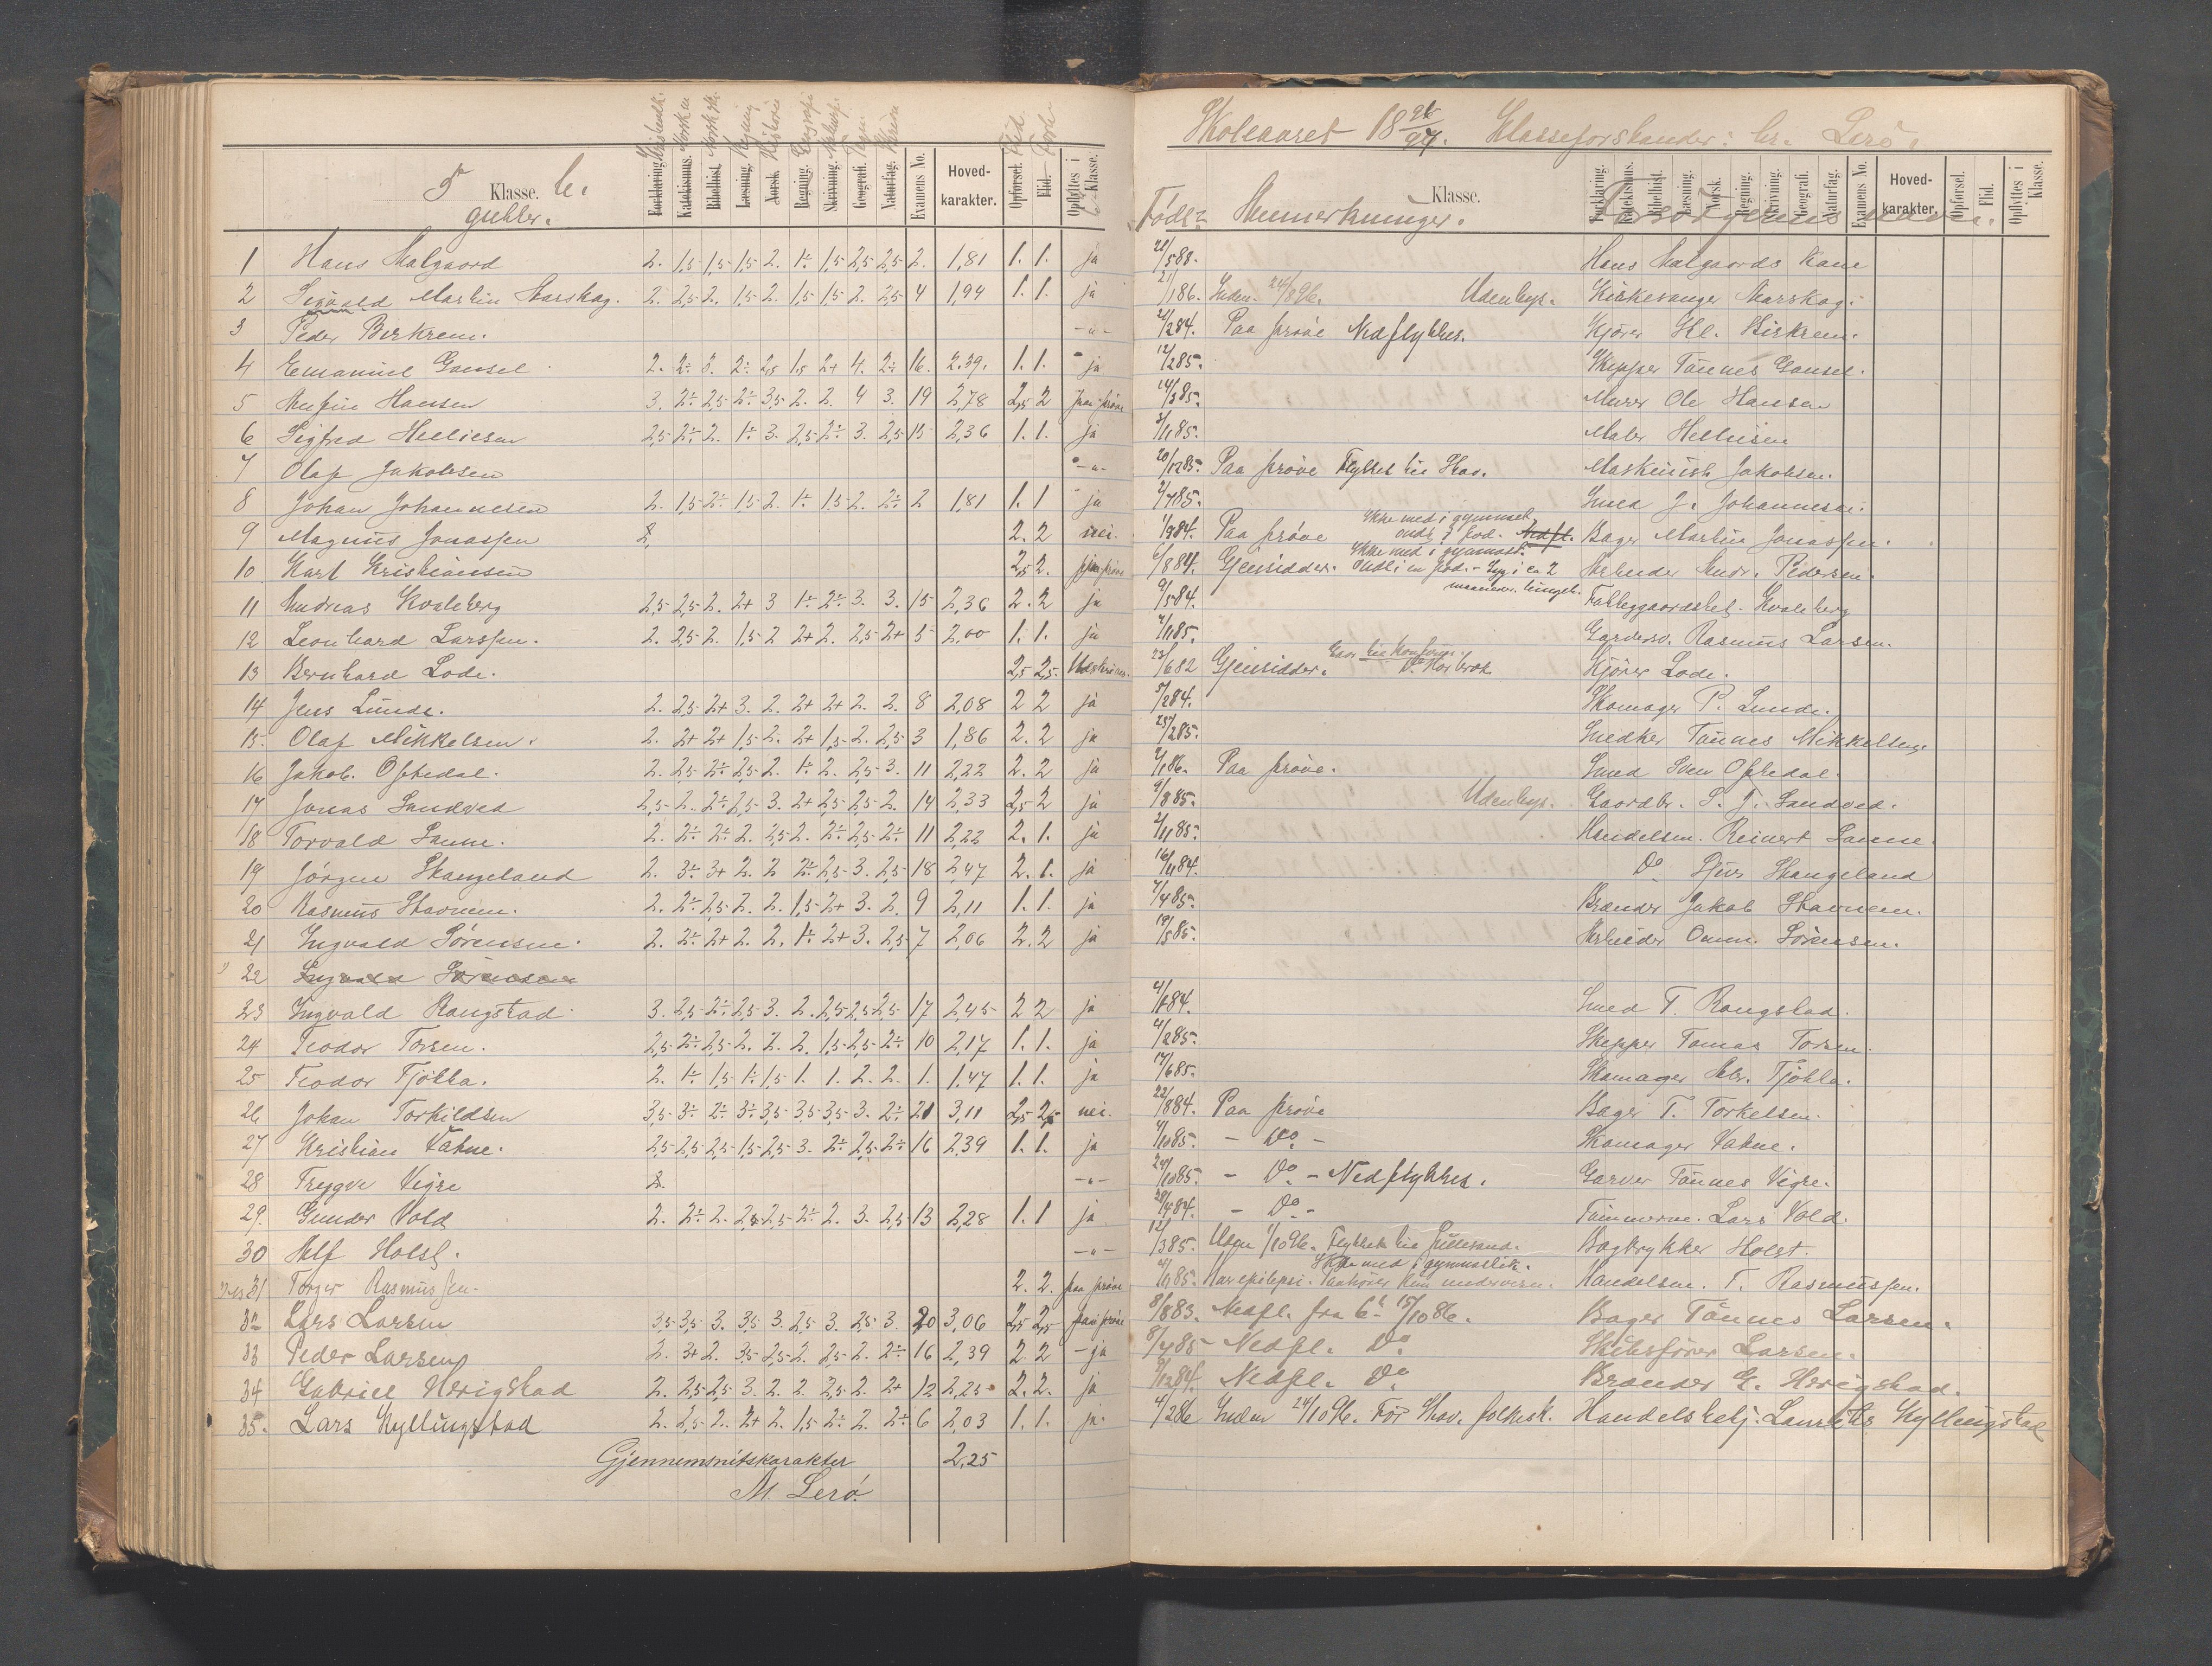 5 Klasse. b.
gutter.
Hoved-
karakter.
Examens No.
Opførsel.
Flid.
Opflyttes i
Klasse.
1 Hans Aalgaard 2. 1,5 1,5 1,5 2. 1÷ 1,5 2,5 2,5 2. 1,81 1. 1. ja
2 Sigvald Martin Aarskog. 2. 2,5 2. 1,5 2. 1,5 1,5 2. 2,5 4 1,94 1. 1. ja
3 Peder Birkrem. -"-
4 Emanuel Gausel 2. 2÷ 3. 2÷ 2,5 1,5 2+ 4. 2÷ 16. 2.39. 1. 1. ja
5 Hansen 3. 2÷ 2,5 2÷ 3,5 2. 2. 4 3. 19 2,78 2,5 2 paa prøve
6 Sigfred Helliesen 2,5 2÷ 2. 1÷ 3. 2,5 2÷ 3. 2,5 15 2,36 1. 1. ja
7 Olaf Jakobsen -"-
8 Johan Johannesen 2. 1,5 2÷ 1,5 2. 1÷ 1,5 2. 2÷ 2 1,81 1. 1 ja
9 Magnus Jonassen 2. 2. 2 nei.
10 Karl Kristiansen 2,5 2. paa prøve
11 Andreas Kvaleberg 2,5 2,5 2. 2+ 3 1÷ 2÷ 3. 3. 15 2,36 2. 2 ja
12 Leonhard Larssen. 2. 2,5 2. 1,5 2 2+ 2. 2,5 2+ 5 2,00 1. 1. ja
13 Bernhard Lode. 2,5 2,5. Udskreven.
14 Jens Lunde. 2. 2,5 2+ 3. 2. 2+ 2+ 2. 2. 8 2,08 2 2 ja
15. Olaf Mikkelsen. 2. 2+ 2+ 1,5 2. 2+ 1,5 2. 2,5 3 1,86 2. 2 ja
16 Jakob Oftedal. 2. 2,5 2÷ 2,5 2. 1÷ 2. 2,5 3. 11 2,22 2. 2 ja
17 Jonas Sandved 2,5 2. 2÷ 2,5 3. 2+ 2,5 2,5 2. 14 2,33 2,5 2 ja
18 Torvald Sanne. 2. 2÷ 2÷ 2. 2,5 2. 2÷ 2,5 2÷ 11 2,22 2. 1. ja
19 Jørgen Skangeland 2. 3÷ 3+ 2. 2 2÷ 2,5 3. 2,5 18 2,47 2. 1. ja
20 Rasmus Stavnem. 2. 2÷ 2,5 2. 2. 1,5 2+ 3. 2. 9 2,11 1. 1. ja
21 Ingvald Sørensen. 2. 2÷ 2+ 2. 2. 1÷ 2+ 3. 2,5 7 2,06 2. 2 ja
22 Ingvald Sørensen
23 Ingvald Rangstad 3. 2,5 2÷ 2,5 3. 2. 2,5 2,5 2,5 17 2,45 2 2 ja
24 Teodor Torsen. 2,5 2÷ 2,5 2. 2. 2. 1,5 2,5 2÷ 10 2,17 1. 1. ja
25 Teodor Tjøtta. 2. 1÷ 1,5 1÷ 1,5 1. 1. 2. 2. 1. 1,47 1. 1. ja
26 Johan Torkildsen 3,5 3÷ 2÷ 3÷ 3,5 3,5 3,5 3. 2÷ 21 3,11 2,5 2,5 nei.
27 Kristian Vatne. 2,5 2,5 2,5 1,5 2,5 3. 2÷ 2,5 2÷ 16 2,39 1. 1. ja
28 Trygve Vigre 2. -"-
29. Gunder Vold 2. 2÷ 2. 2,5 2÷ 2. 3. 2,5 13 2,28 1. 1 ja
30 Alf Holst. -"-
31 Torger Rasmussen. 2. 2. paa prøve
32 Lars Larsen 3,5 3,5 3. 3,5 3. 2,5 3. 2,5 3. 20 3,06 2,5 2,5 paa prøve
33 Peder Larsen 2. 3+ 2. 3,5 2,5 2. 2,5 2. 2÷ 16 2,39 2 2 - ja
34 Gabriel Herigstad 2. 2,5 2,5 3. 2. 2. 2,5 2. 2+ 12 2,25 2. 2. ja
35. Lars Kyllingstad 2. 2,5 2. 2+ 2. 1,5 2÷ 2. 2÷ 6 2,03 1. 1. ja
Gjennemsnitskarakter 2,25
M. Lerø.
Skoleaaret 1896/97. Klasseforstander: hr. Lerø.
Klasse.
Født: Anmerkninger. Forsørgerens navn.
Hoved-
karakter.
Examens No.
Opførsel.
Flid.
Opflyttes i
Klasse.
Hans Aalgaards Kone
21/1 86. Inden. 24/8 96. Udenbys. Kirkesanger Aarskog.
Paa prøve Nedflyttes. Kjører Birkrem.
12/2 85. Skipper Tønnes Gausel.
14/3 85. Murer Ole Hansen
Maler Helliesen
20/12 85. Paa prøve Flyttet til Hav. Maskinist Jakobsen.
2/7 85. Smed J. Johannesen.
Paa prøve Ikke med i gymnast. ondt i fod. Nedfl. Bager Martin Jonassen.
6/8 84. Gjensidder. Ikke med i gymnast. Ondt i en fod. - Syg i ca 2 maaneder. Arbeider Andr. Pedersen.
9/5 84. Kvaleberg
7/1 85. Rasmus Larsen.
23/6 82 Gjensidder. Do Har brok Kjører Lode.
5/2 84. Skomager P. Lunde.
25/2 85. Snedker Tønnes Mikkelsen.
2/1 86. Paa prøve. Smed Sven Oftedal.
9/8 85. Udenbys. Gaardbr. S. J. Sandved.
2/11 85. Handelsm. Reinert Sanne.
16/11 84. Do Sjur Skangeland
7/4 85. Brænder Jakob Stavnem.
19/5 85. Arbeider Omm. Sørensen.
Smed T. Rangstad.
4/2 85. Skipper Tomas Torsen.
17/6 85. Skomager Tjøtta.
22/8 84. Paa prøve Bager T. Torkelsen.
4/10 85. - Do - Skomager Vatne.
24/10 85. - Do - Nedflyttes. Garver Tønnes Vigre.
- Do - Tømmerm. Lars Vold.
12/3 85. Udgn 1/10 96. Flyttet til Lillesand. Bogtrykker Holst.
Ikke med i gymnastik.
Har epilepsi. Handelsm. T. Rasmussen.
8/8 83. Nedfl. fra 6 15/10 86. Bager Tønnes Larsen.
8/4 85 Nedfl. Do Skibsfører Larsen.
Nedfl. Do Brænder G. Herigstad.
4/2 86 Inden 24/10 96. Før Hav. folkesk. Handelsbetj. Laurits Kyllingstad